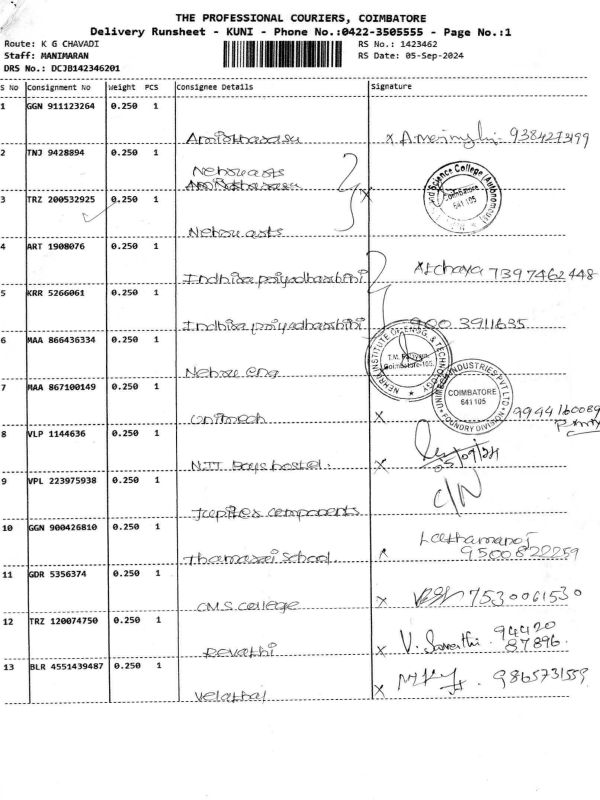 THE PROFESSIONAL COURIERS, COIMBATORE
Delivery Runsheet - KUNI - Phone No.:0422-3505555 - Page No.:1
Route: K G CHAVADI RS No.: 1423462
Staff: MANIMARAN RS Date: 05-Sep-2024
DRS No.: DCJB142346201
S No Consignment No Weight PCS Consignee Details Signature
1 GGN 911123264 0.250 1
x 9384273199
2 TNJ 9428894 0.250 1
Nehru arts
and Science College (Autonomous)
Coimbatore
641 105
3 TRZ 200532925 0.250 1 x
Nehru arts
4 ART 1908076 0.250 1
Indhira priyadharshini Archaya 7397462448
5 KRR 5266061 0.250 1
Indhira priyadharshini 900 3911635
6 MAA 866436334 0.250 1
Nehru eng
NEHRU INSTITUTE OF ENGG. & TECHNOLOGY
T.M. Palayam,
Coimbatore-105.
7 MAA 867100149 0.250 1
Unimech x 9944160089
UNIMECH INDUSTRIES PVT LTD.
COIMBATORE
641 105
FOUNDRY DIVISION
8 VLP 1144636 0.250 1
NIT Boys hostel. x 05/09/24
9 VPL 223975938 0.250 1 C/N
Jupiter components
10 GGN 900426810 0.250 1
Thamarai School 9500822259
11 GDR 5356374 0.250 1
CMS college x 7530061530
12 TRZ 120074750 0.250 1
Revathi x 94420
87896.
13 BLR 4551439487 0.250 1
Velathal x 9865731559